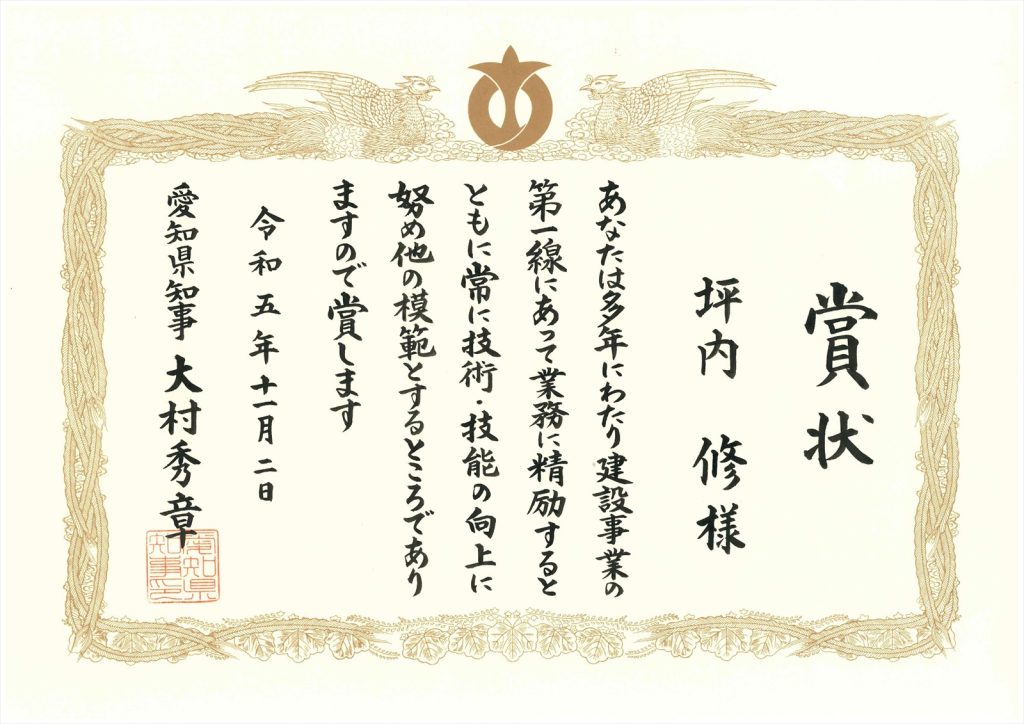 賞状
坪内 修様
あなたは多年にわたり建設事業の
第一線にあって業務に精励すると
ともに常に技術・技能の向上に
努め他の模範とするところであり
ますので賞します
令和五年十一月二日
愛知県知事 大村秀章
愛知県
知事印